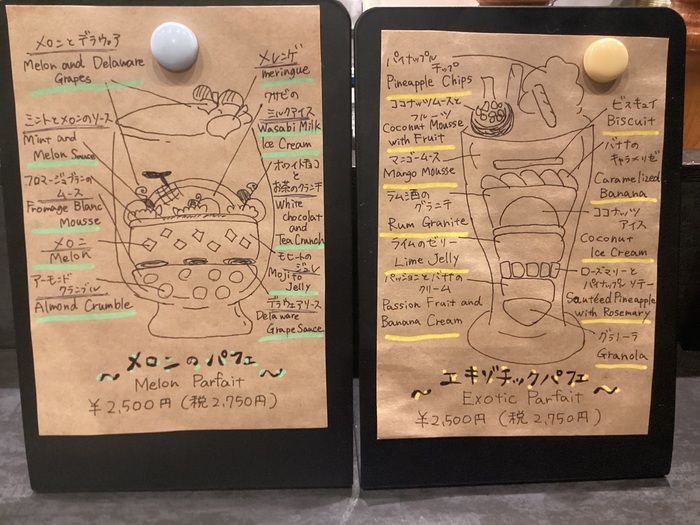 メロンとデラウェア
Melon and Delaware
Grapes
ミントとメロンのソース
Mint and
Melon Sauce
フロマージュブランの
ムース
Fromage Blanc
Mousse
メロン
Melon
アーモンド
クランブル
Almond Crumble
メレンゲ
meringue
ワサビの
ミルクアイス
Wasabi Milk
Ice Cream
ホワイトチョコ
と
お茶のクランチ
White
chocolat
and
Tea Crunch
モヒートの
ジュレ
Mojito
Jelly
デラウェアソース
Delaware
Grape Sauce
〜メロンのパフェ〜
Melon Parfait
¥2,500円(税2,750円)
パイナップル
チップ
Pineapple Chips
ココナッツムースと
フルーツ
Coconut Mousse
with Fruit
マンゴームース
Mango Mousse
ラム酒の
グラニテ
Rum Granite
ライムのゼリー
Lime Jelly
パッションとバナナの
クリーム
Passion Fruit and
Banana Cream
ビスキュイ
Biscuit
バナナの
キャラメリゼ
Caramelized
Banana
ココナッツ
アイス
Coconut
Ice Cream
ローズマリーと
パイナップルソテー
Sautéed Pineapple
with Rosemary
グラノーラ
Granola
〜エキゾチックパフェ〜
Exotic Parfait
¥2,500円(税2,750円)